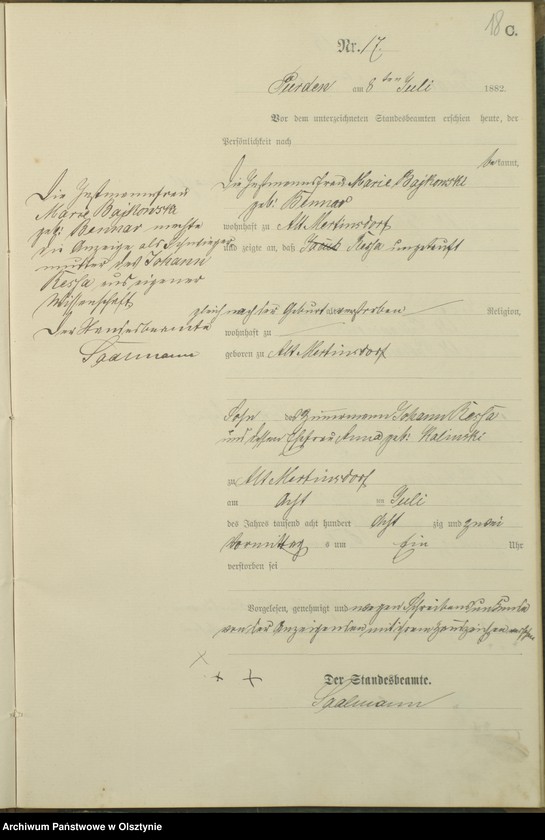 18 C.
Nr. 17.
Purden am 8ten Juli 1882.
Vor dem unterzeichneten Standesbeamten erschien heute, der
Persönlichkeit nach
bekannt,
Die Instmannsfrau Marie Bajkowski
geb: Bennar
wohnhaft zu Alt Mertinsdorf
und zeigte an, daß Kessa ungetauft
gleich nach der Geburt verstorben Religion,
wohnhaft zu
geboren zu Alt Mertinsdorf
Sohn des Zimmermann Johann Kessa
und dessen Ehefrau Anna geb: Kalinski
zu Alt Mertinsdorf
am Acht ten Juli
des Jahres tausend acht hundert Acht zig und zwei
Vormittag s um Ein Uhr
verstorben sei
Vorgelesen, genehmigt und wegen Schreibensunkunde
von der Anzeigenden mit ihrem Handzeichen
+ +
Der Standesbeamte.
Saalmann
Die Instmannfrau
Marie Bajkowska
geb: Bennar machte
die Anzeige als Schwieger
mutter des Johann
Kessa aus eigener
Wissenschaft
Der Standesbeamte
Saalmann
Archiwum Państwowe w Olsztynie